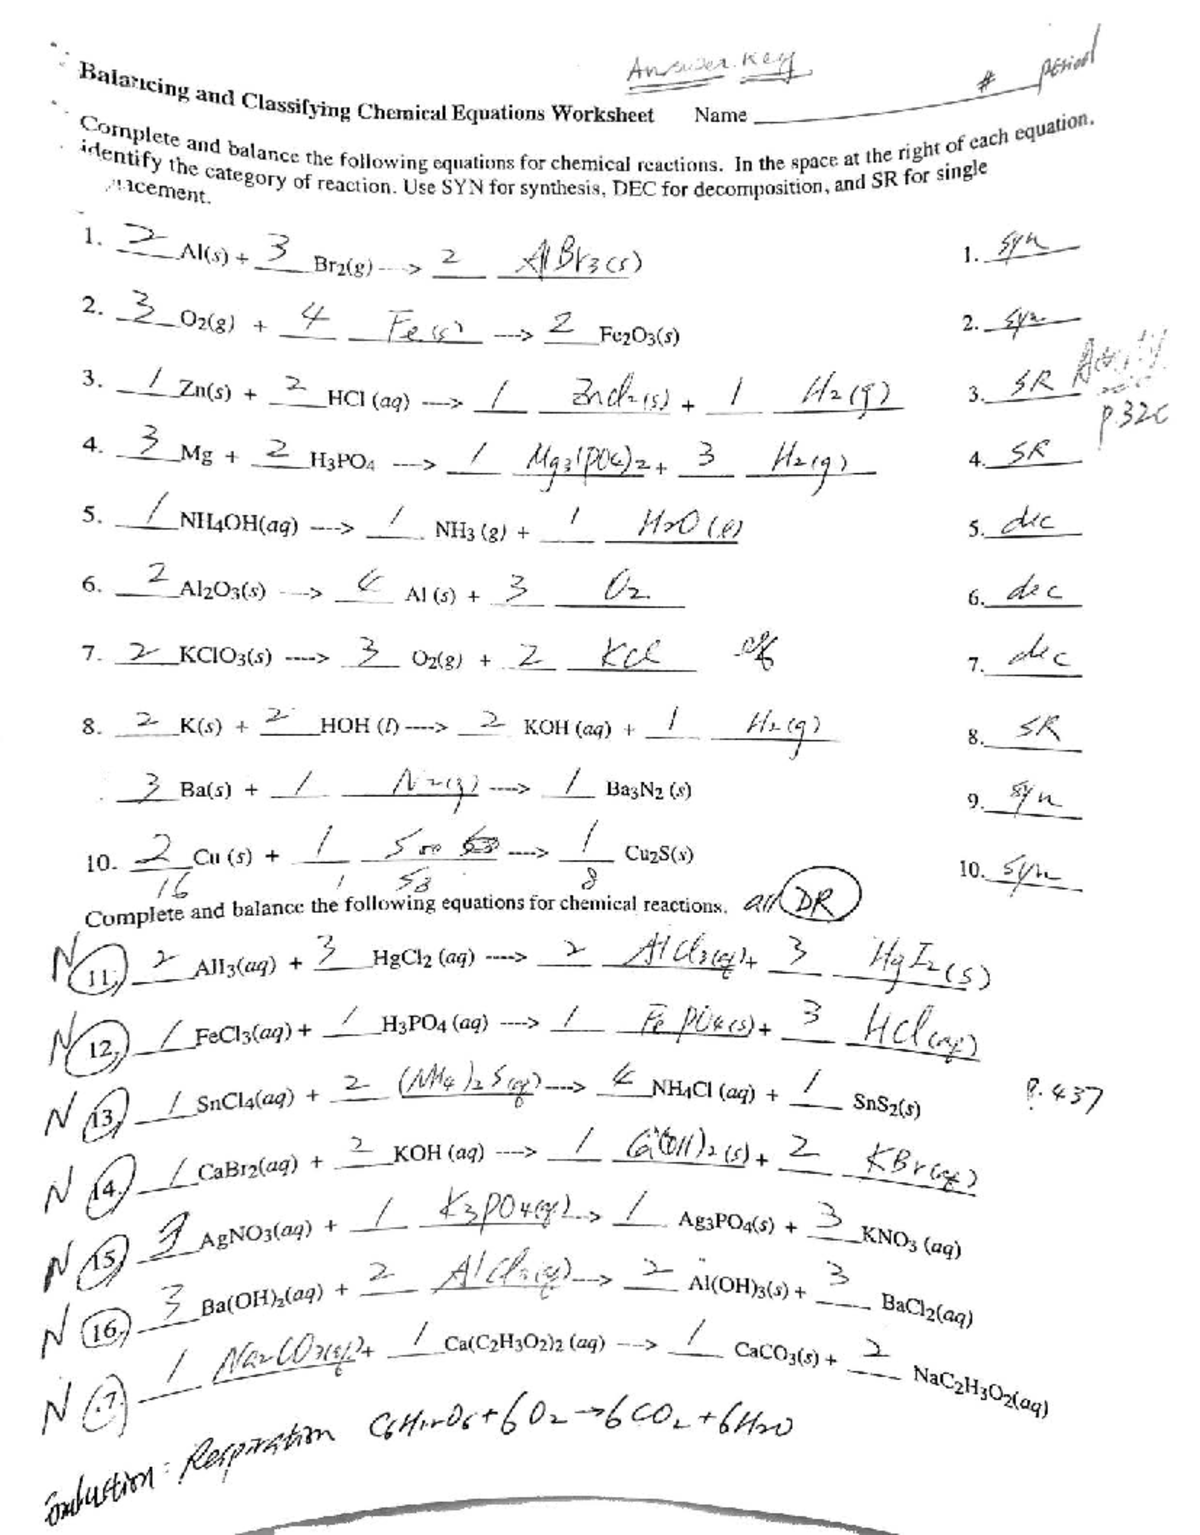 Answer Key
# Period
Balancing and Classifying Chemical Equations Worksheet Name
Complete and balance the following equations for chemical reactions. In the space at the right of each equation,
identify the category of reaction. Use SYN for synthesis, DEC for decomposition, and SR for single
acement.
1. 2 Al(s) + 3 Br2(g) ---> 2 AlBr3(s) 1. syn
2. 3 O2(g) + 4 Fe(s) ---> 2 Fe2O3(s) 2. syn
3. 1 Zn(s) + 2 HCl (aq) ---> 1 ZnCl2(s) + 1 H2(g) 3. SR
p.32c
4. 3 Mg + 2 H3PO4 ---> 1 Mg3(PO4)2 + 3 H2(g) 4. SR
5. 1 NH4OH(aq) ---> 1 NH3 (g) + 1 H2O(l) 5. dec
6. 2 Al2O3(s) ---> 4 Al (s) + 3 O2 6. dec
7. 2 KClO3(s) ----> 3 O2(g) + 2 KCl 7. dec
8. 2 K(s) + 2 HOH (l) ----> 2 KOH (aq) + 1 H2(g) 8. SR
3 Ba(s) + 1 N2(g) ----> 1 Ba3N2 (s) 9. syn
10. 2 Cu (s) + 1 S ---> 1 Cu2S(s) 10. syn
16 1 S8 8
Complete and balance the following equations for chemical reactions. all DR
N 11. 2 AlI3(aq) + 3 HgCl2 (aq) ----> 2 AlCl3(aq) + 3 HgI2(s)
N 12. 1 FeCl3(aq) + 1 H3PO4 (aq) ---> 1 FePO4(s) + 3 HCl(aq)
N 13. 1 SnCl4(aq) + 2 (NH4)2S(aq) ---> 4 NH4Cl (aq) + 1 SnS2(s) P. 437
N 14. 1 CaBr2(aq) + 2 KOH (aq) ---> 1 Ca(OH)2(s) + 2 KBr(aq)
N 15. 3 AgNO3(aq) + 1 K3PO4(aq) ---> 1 Ag3PO4(s) + 3 KNO3 (aq)
N 16. 3 Ba(OH)2(aq) + 2 AlCl3(aq) ---> 2 Al(OH)3(s) + 3 BaCl2(aq)
N 7. 1 Na2CO3(aq) + 1 Ca(C2H3O2)2 (aq) ---> 1 CaCO3(s) + 2 NaC2H3O2(aq)
Combustion: Respiration C6H12O6 + 6O2 → 6CO2 + 6H2O